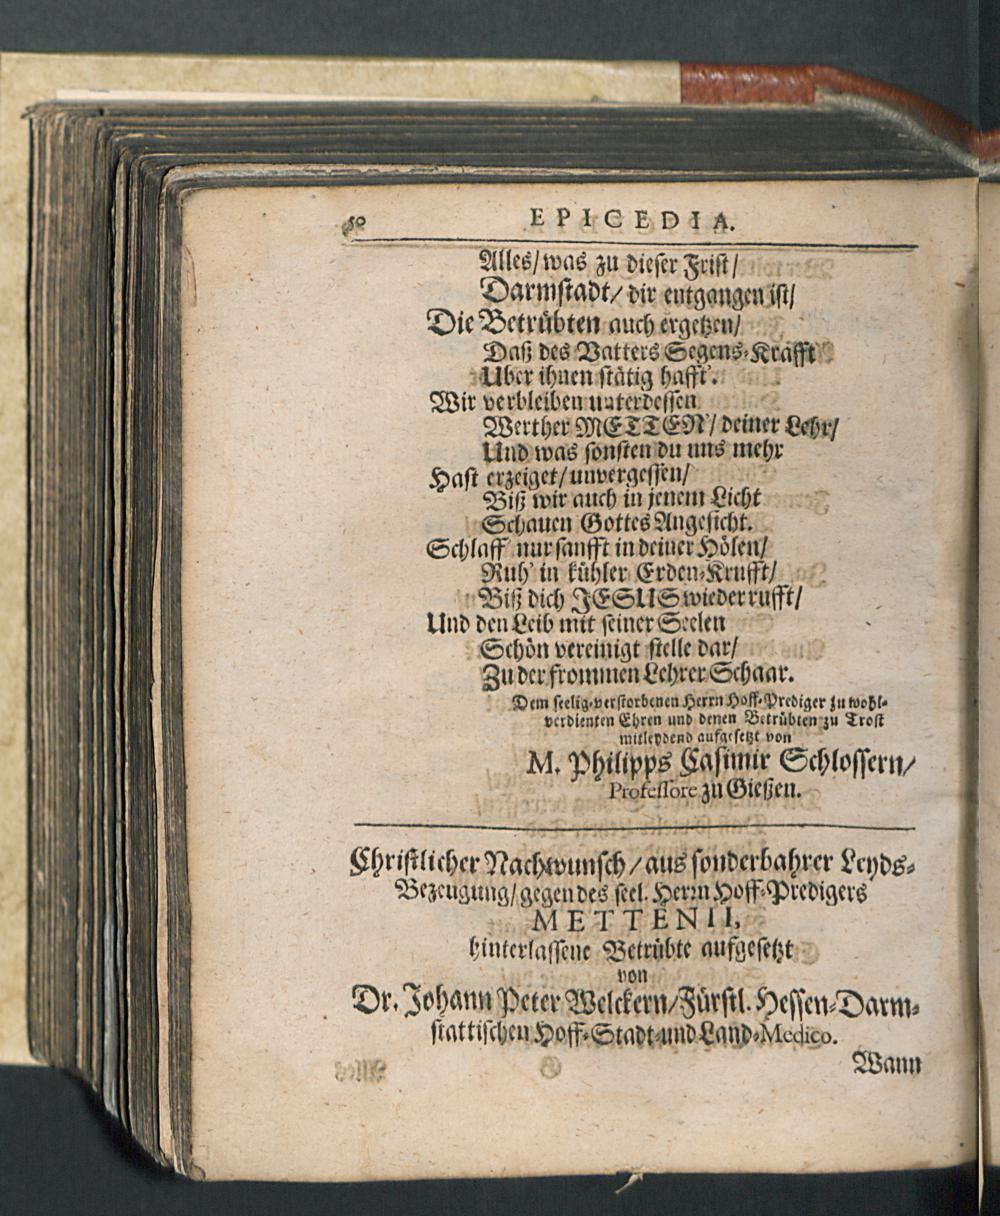 50 EPICEDIA.
Alles/ was zu dieser Frist/
Darmstadt/ dir entgangen ist/
Die Betrübten auch ergetzen/
Daß des Vatters Segens-Kräfft
Uber ihnen stätig hafft'.
Wir verbleiben unterdessen
Werther METTEN/ deiner Lehr/
Und was sonsten du uns mehr
Hast erzeiget/ unvergessen/
Biß wir auch in jenem Licht
Schauen Gottes Angesicht.
Schlaff' nur sanfft in deiner Hölen/
Ruh' in kühler Erden-Krufft/
Biß dich JESUS wieder rufft/
Und den Leib mit seiner Seelen
Schön vereinigt stelle dar/
Zu der frommen Lehrer Schaar.
Dem seelig-verstorbenen Herrn Hoff-Prediger zu wohl-
verdienten Ehren und denen Betrübten zu Trost
mitleydend aufgesetzt von
M. Philipps Casimir Schlossern/
Professore zu Gießen.
Christlicher Nachwunsch/ aus sonderbahrer Leyds-
Bezeugung/ gegen des seel. Herrn Hoff-Predigers
METTENII,
hinterlassene Betrübte aufgesetzt
von
Dr. Johann Peter Welckern/ Fürstl. Hessen-Darm-
stattischen Hoff-Stadt-und Land-Medico.
Wann